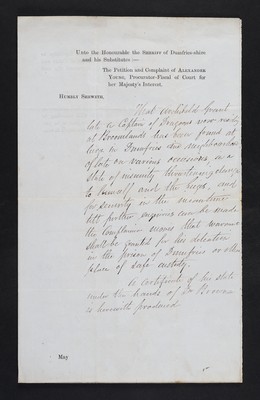 Unto the Honourable the SHERIFF of Dumfries-shire
and his Substitutes :—
The Petition and Complaint of ALEXANDER
YOUNG, Procurator-Fiscal of Court for
her Majesty's Interest,
HUMBLY SHEWETH,
That Archibald Grant
late a Captain of Dragoons now residing
at Broomlands has been found at
large in Dumfries and neighbourhood
of late on various occasions, in a
state of insanity threatening danger
to himself and the lieges, and
for security in the meantime
till further inquiries can be made
the complainer craves that warrant
shall be granted for his detention
in the prison of Dumfries or other
place of safe custody.
A certificate of his state
under the hands of Dr Browne
is herewith produced
May